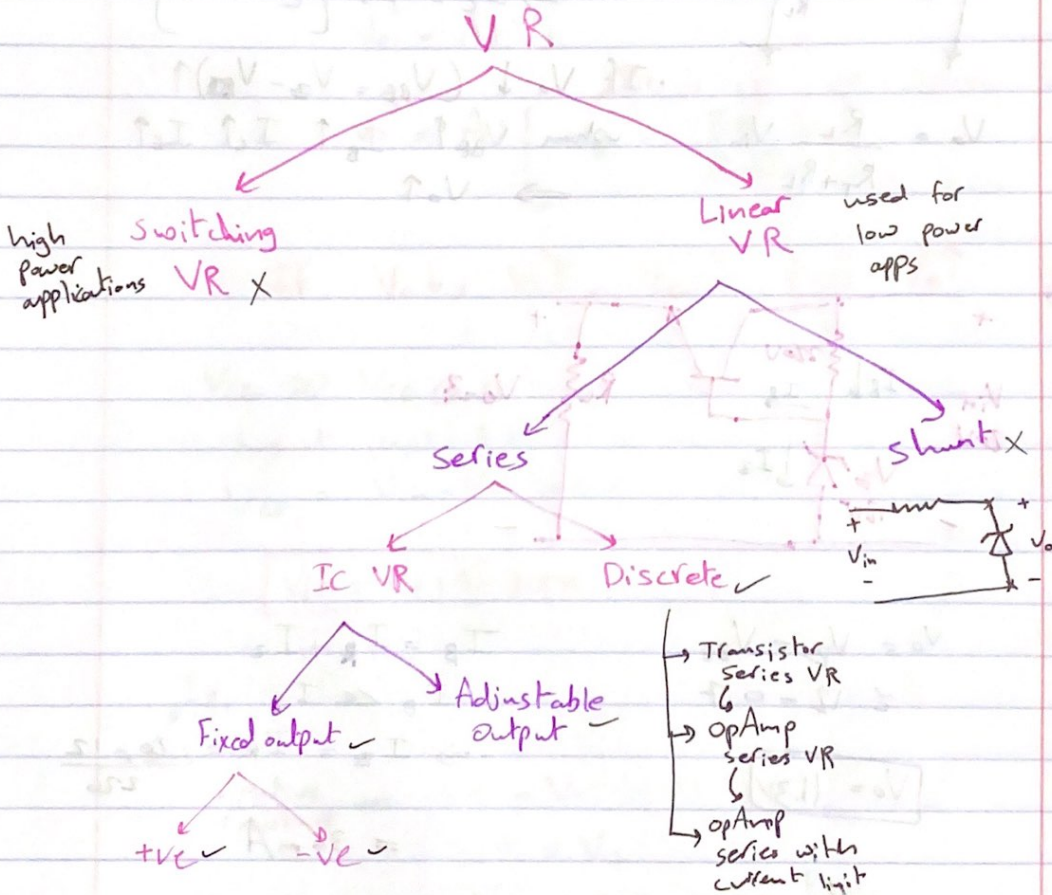 V R
high
power
applications
switching
VR X
Linear
VR
used for
low power
apps
series
shunt X
+
Vin
-
+
Vo
-
IC VR
Discrete ✓
Fixed output ✓
Adjustable
output ✓
+ve ✓
-ve ✓
Transistor
series VR
opAmp
series VR
opAmp
series with
current limit